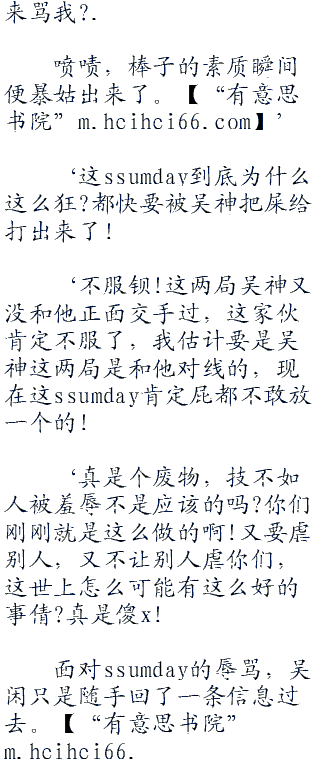 来骂我?.
喷啧，棒子的素质瞬间
便暴姑出来了。【“有意思
书院”m.hcihci66.com】’
‘这ssumday到底为什么
这么狂?都快要被吴神把屎给
打出来了!
‘不服钡!这两局吴神又
没和他正面交手过，这家伙
肯定不服了，我估计要是吴
神这两局是和他对线的，现
在这ssumday肯定屁都不敢放
一个的!
‘真是个废物，技不如
人被羞辱不是应该的吗?你们
刚刚就是这么做的啊!又要虐
别人，又不让别人虐你们，
这世上怎么可能有这么好的
事倩?真是傻x!
面对ssumday的辱骂，吴
闲只是随手回了一条信息过
去。【“有意思书院”
m.hcihci66.